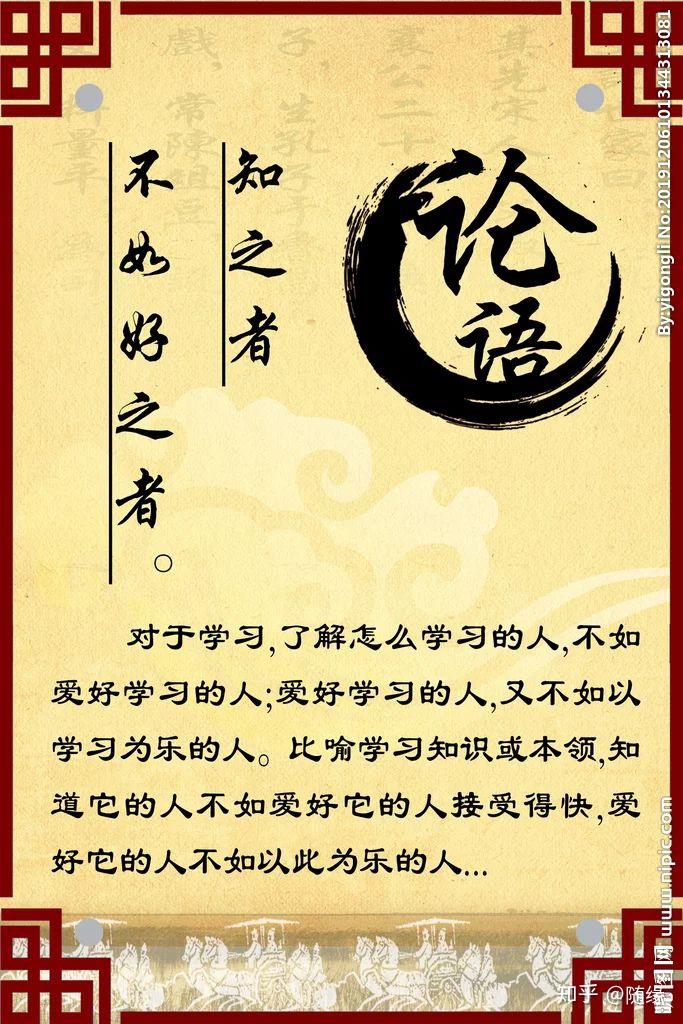 论语
知之者
不如好之者。
对于学习,了解怎么学习的人,不如
爱好学习的人;爱好学习的人,又不如以
学习为乐的人。比喻学习知识或本领,知
道它的人不如爱好它的人接受得快,爱
好它的人不如以此为乐的人...
By:yigongli No:20191206101344313081
www.nipic.com
知乎 @随缘